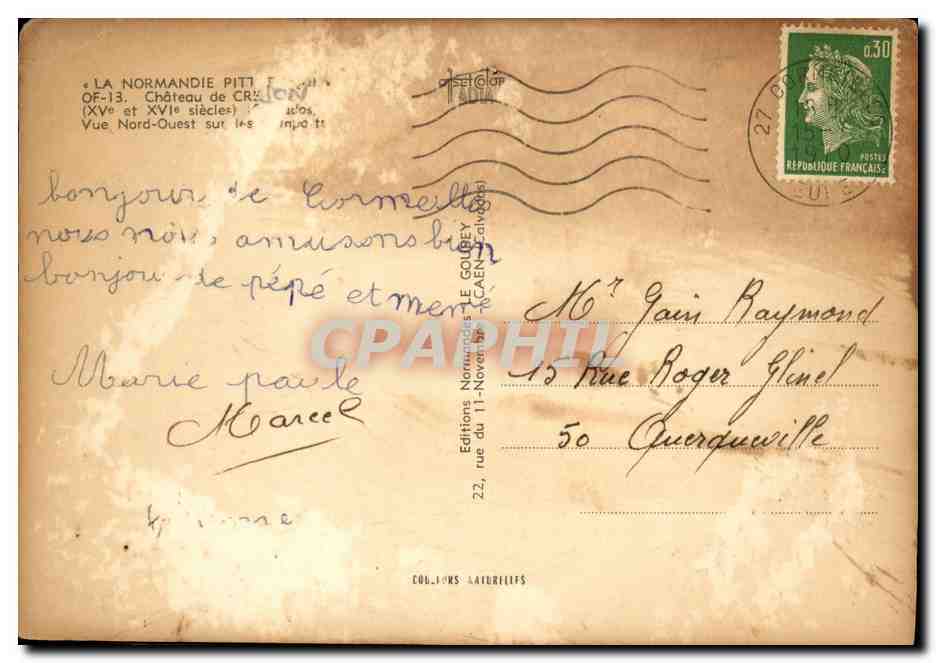 « LA NORMANDIE
OF-13. Château de
(XVe et XVIe siècles)
Vue Nord-Ouest sur les
0.30
POSTES
REPUBLIQUE FRANCAISE
27
bonjour de Cormeilles
nous nous amusons bien
bonjour de pépé et mémé
Marie paule
Marcel
Editions Normandes LE GOUBEY
22, rue du 11-Novembre - CAEN (Calvados)
Mr Gain Raymond
15 Rue Roger Glinel
50 Querqueville
CPAPHIL
COULEURS NATURELLES